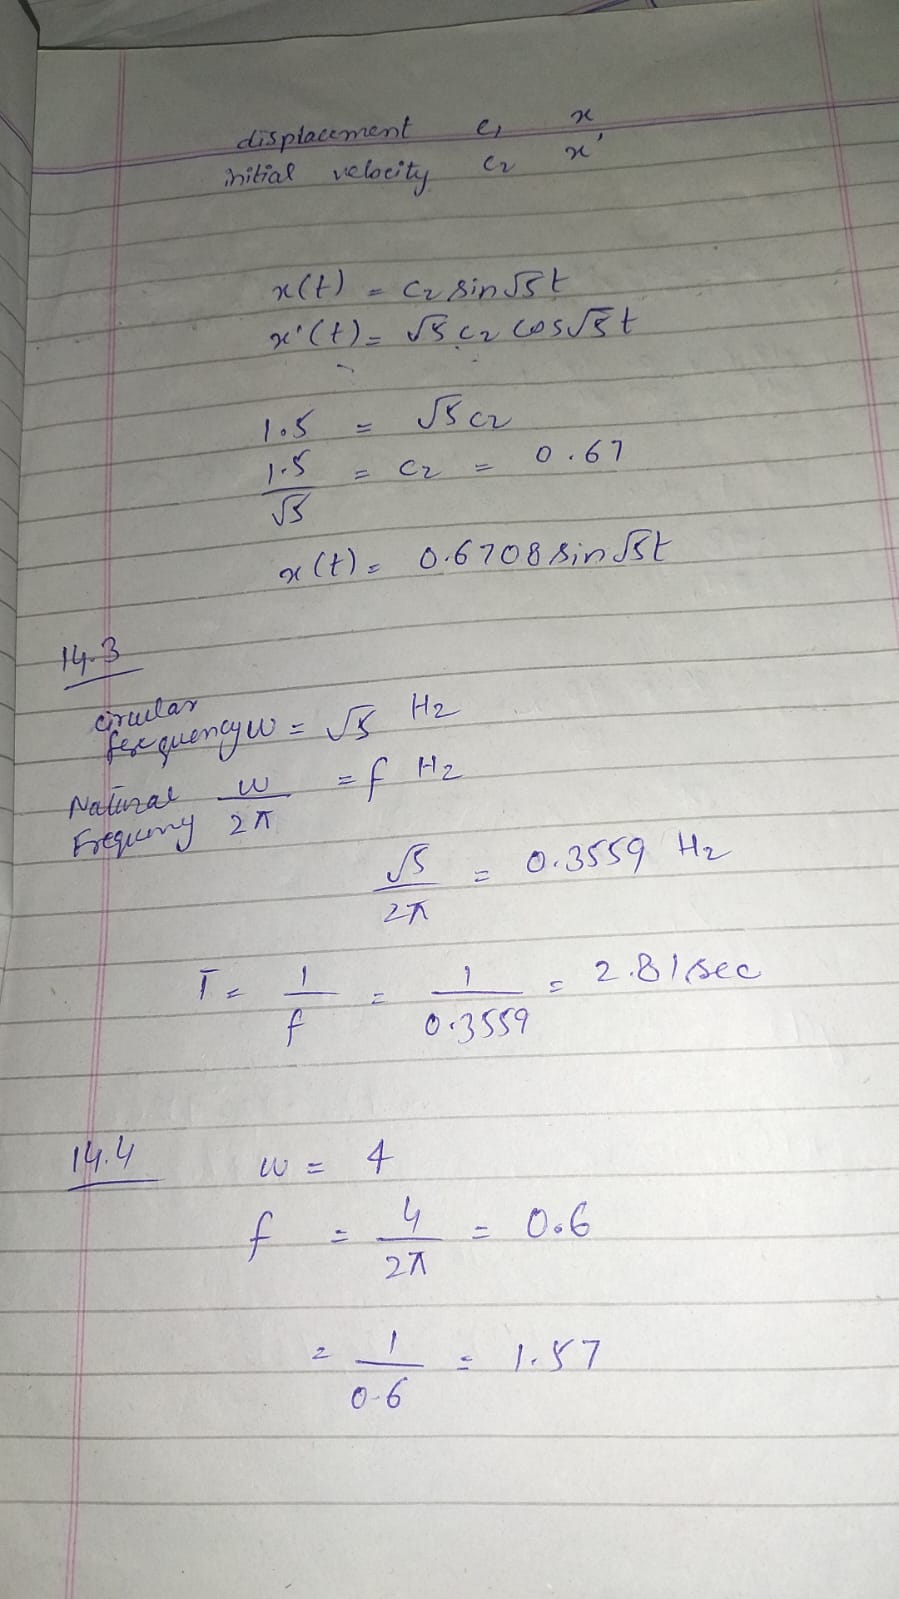 displacement c₁ x
initial velocity c₂ x'
x(t) = c₂ sin√5t
x'(t) = √5 c₂ cos√5t
1.5 = √5 c₂
1.5/√5 = c₂ = 0.67
x(t) = 0.6708 sin√5t
14.3
circular
frequency w = √5 Hz
Natural w/2π = f Hz
Frequency
√5/2π = 0.3559 Hz
T = 1/f = 1/0.3559 = 2.81 sec
14.4 w = 4
f = 4/2π = 0.6
= 1/0.6 = 1.57